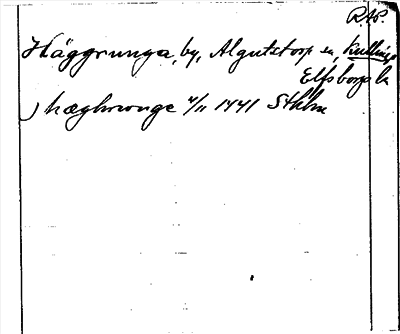 R.A.P.
Häggrunga, by, Algutstorp sn, Kullings
Elfsborgs län
hæghrunge 4/11 1441 Sthlm